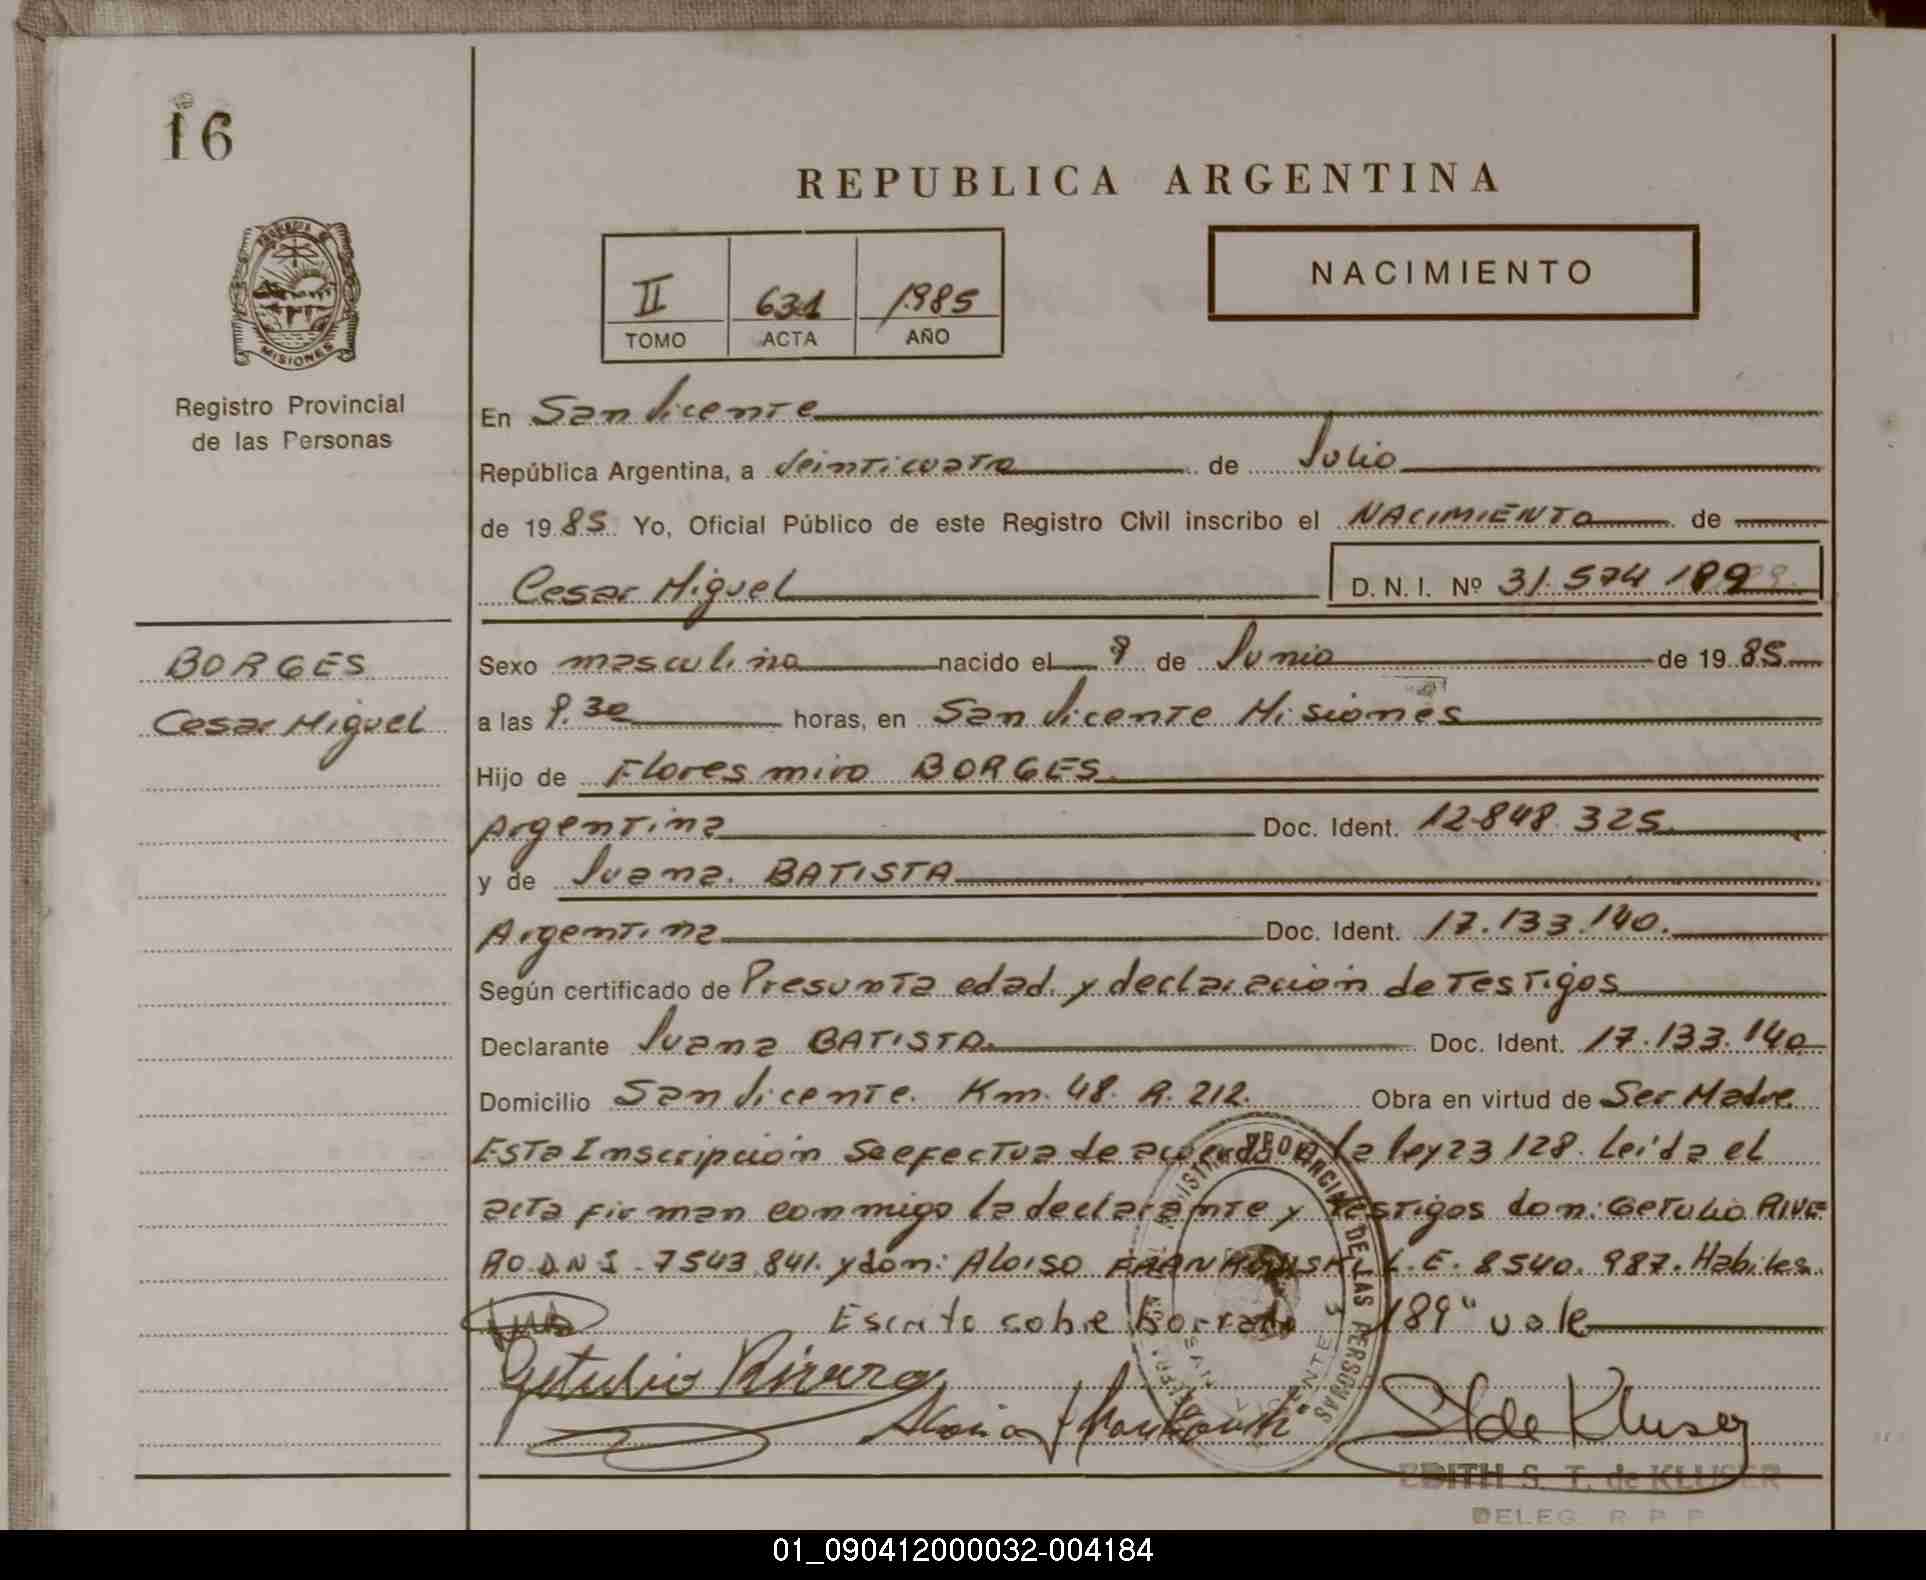 16
REPUBLICA ARGENTINA
NACIMIENTO
II 631 1985
TOMO ACTA AÑO
MISIONES
Registro Provincial
de las Personas
En San Vicente
República Argentina, a Veinticuatro de Julio
de 1985 Yo, Oficial Público de este Registro Civil inscribo el NACIMIENTO de
Cesar Miguel D.N.I. Nº 31.574.189
BORGES
Cesar Miguel
Sexo masculino nacido el de Junio de 1985
a las horas, en San Vicente Misiones
Hijo de Floresmiro BORGES
Argentina Doc. Ident. 12.848.325
y de Juana BATISTA
Argentina Doc. Ident. 17.133.140.
Según certificado de Presunta edad y declaración de Testigos
Declarante Juana BATISTA. Doc. Ident. 17.133.140
Domicilio San Vicente. Km. 48. R. 212. Obra en virtud de Ser Madre
Esta Inscripción se efectua de acuerdo a la ley 23 128. Leída el
acta firman conmigo la declarante y Testigos don: Getulio RIVE
RO DNI 7543.841. y don: Aloiso L.E. 8540.987. Habiles.
Escrito sobre borrado 189" vale
Getulio Rivero
S T de Kluser
EDITH S. T. de KLUSER
DELEG R P P
01_090412000032-004184